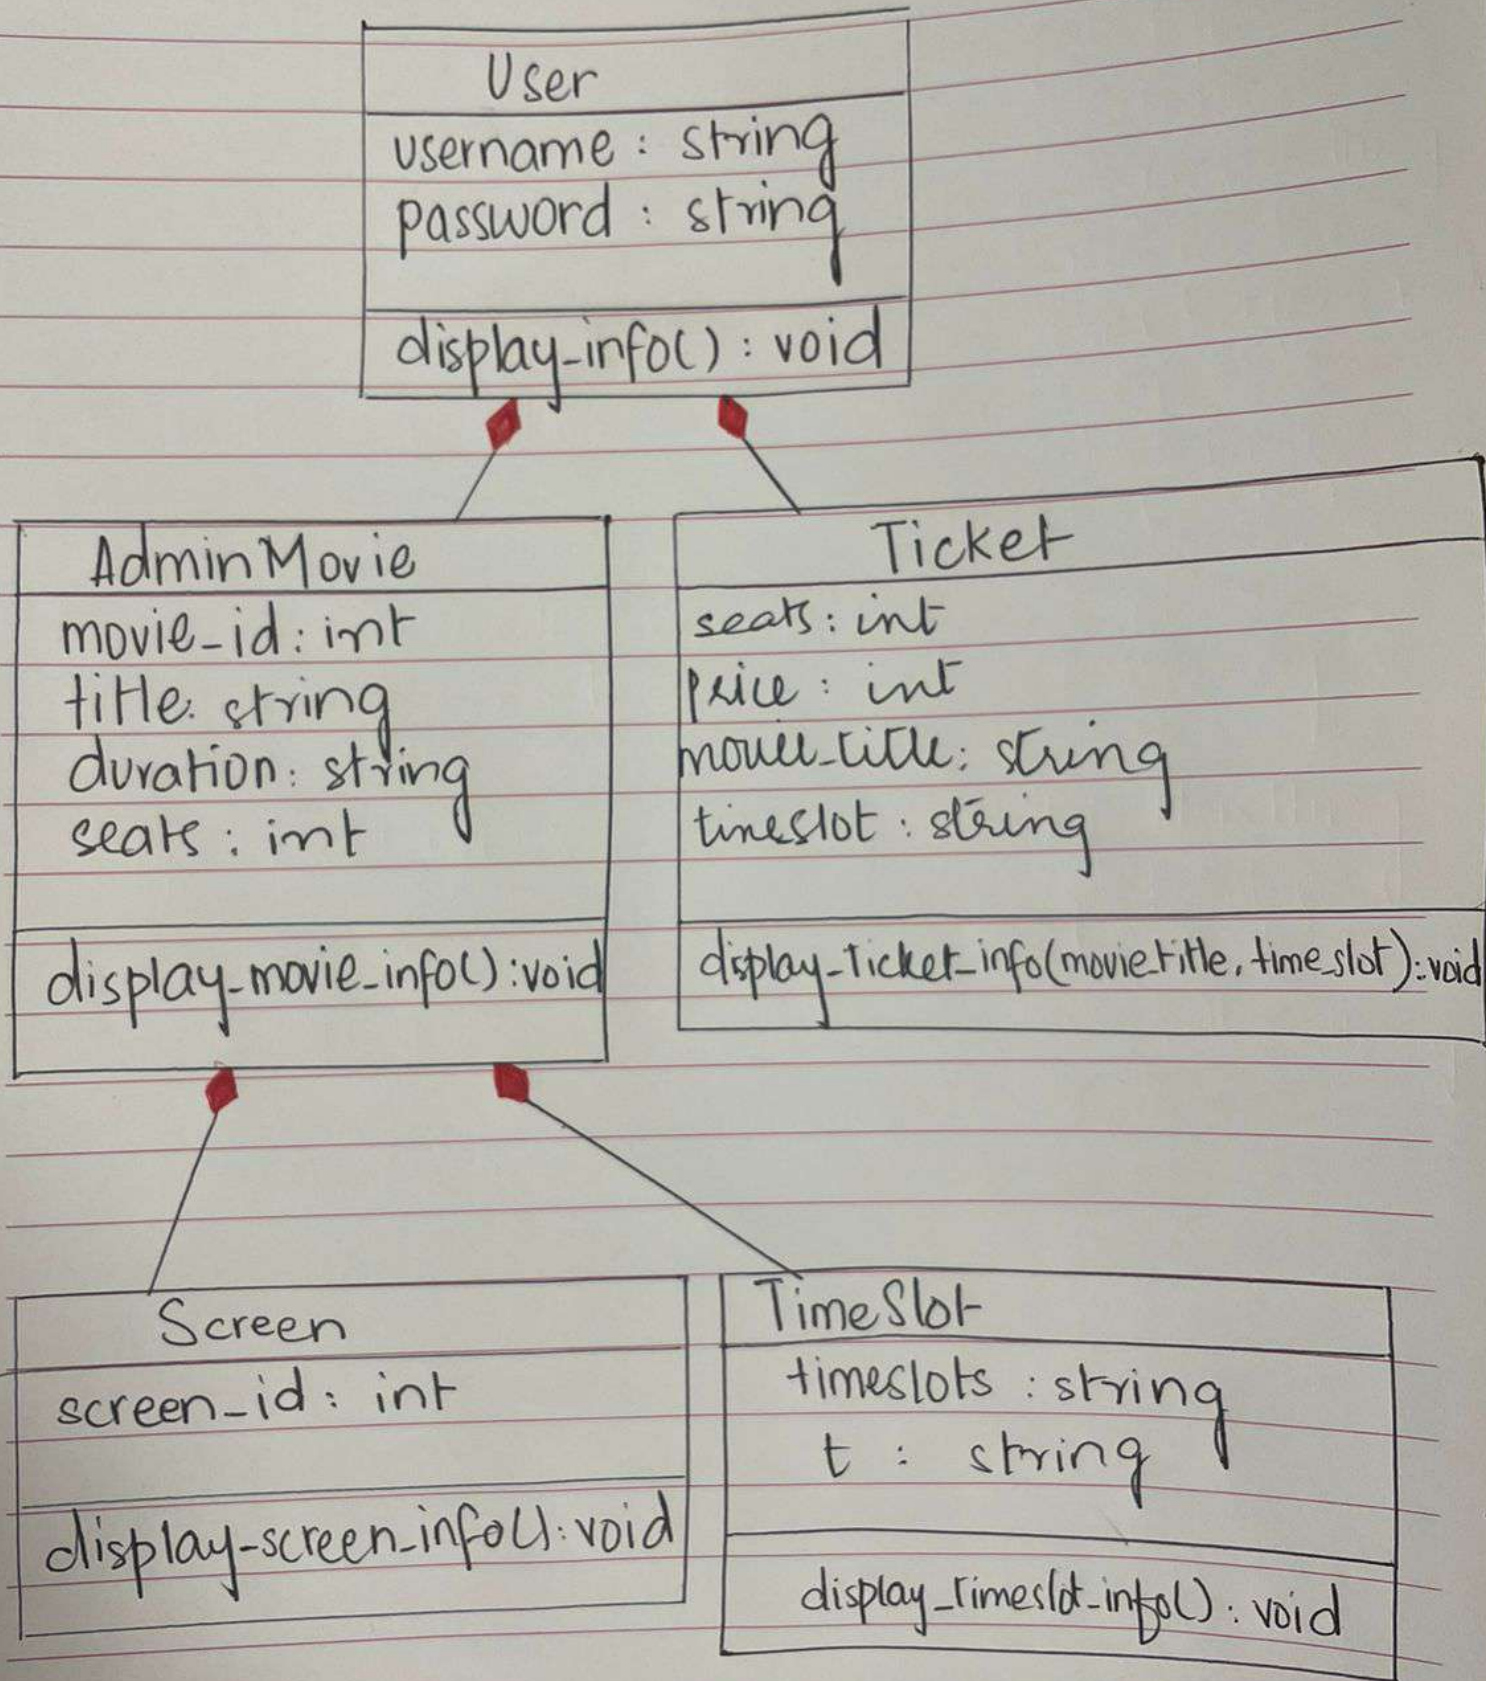 User
username : string
password : string
display_info() : void
AdminMovie
movie_id : int
title: string
duration: string
seats : int
display_movie_info() : void
Ticket
seats : int
price : int
movie_title : string
timeslot : string
display_Ticket_info(movietitle, time_slot) : void
Screen
screen_id : int
display_screen_info() : void
TimeSlot
timeslots : string
t : string
display_timeslot_info() : void